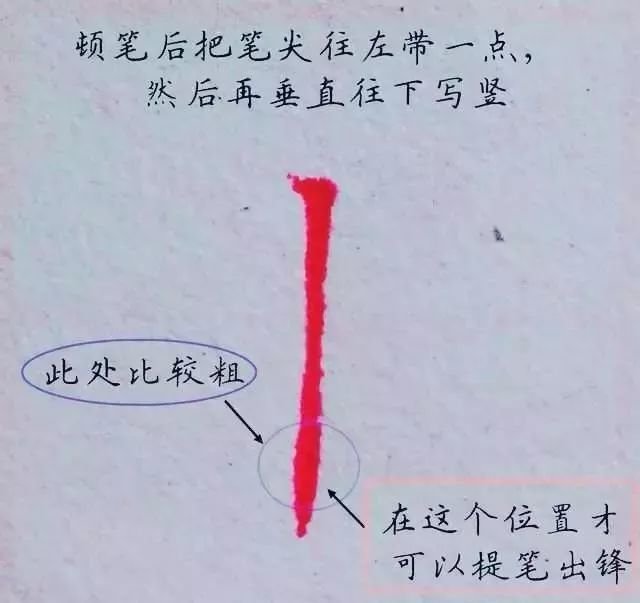 顿笔后把笔尖往左带一点，
然后再垂直往下写竖
此处比较粗
在这个位置才
可以提笔出锋